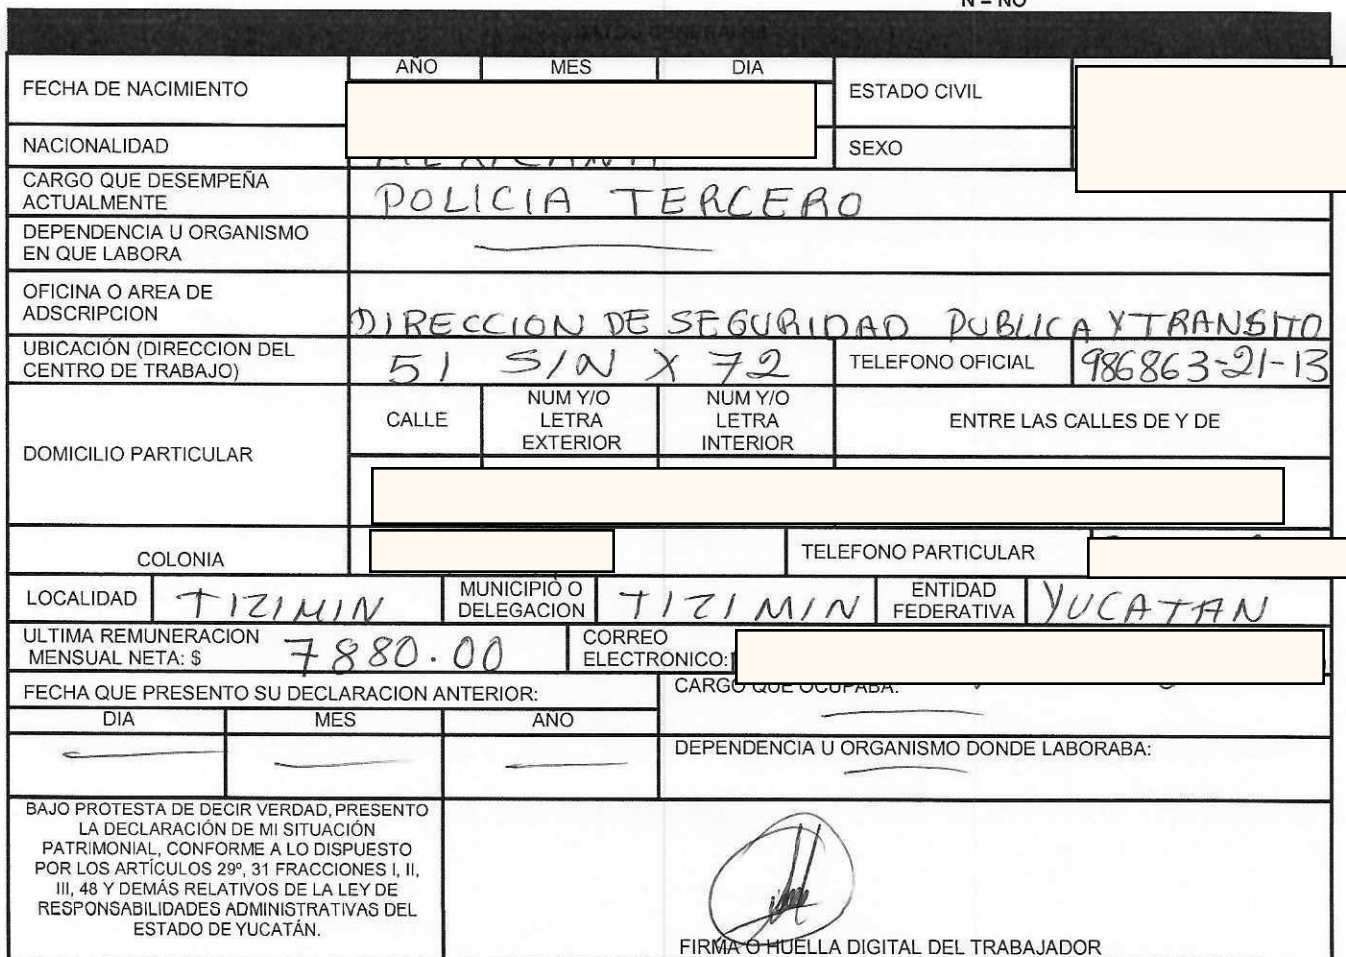 N = NO
DATOS GENERALES
FECHA DE NACIMIENTO AÑO MES DIA ESTADO CIVIL
NACIONALIDAD SEXO
CARGO QUE DESEMPEÑA
ACTUALMENTE POLICIA TERCERO
DEPENDENCIA U ORGANISMO
EN QUE LABORA
OFICINA O AREA DE
ADSCRIPCION DIRECCION DE SEGURIDAD PUBLICA Y TRANSITO
UBICACIÓN (DIRECCION DEL
CENTRO DE TRABAJO) 51 S/N X 72 TELEFONO OFICIAL 986863-21-13
DOMICILIO PARTICULAR CALLE NUM Y/O
LETRA
EXTERIOR NUM Y/O
LETRA
INTERIOR ENTRE LAS CALLES DE Y DE
COLONIA TELEFONO PARTICULAR
LOCALIDAD TIZIMIN MUNICIPIO O
DELEGACION TIZIMIN ENTIDAD
FEDERATIVA YUCATAN
ULTIMA REMUNERACION
MENSUAL NETA: $ 7880.00 CORREO
ELECTRONICO:
FECHA QUE PRESENTO SU DECLARACION ANTERIOR: CARGO QUE OCUPABA:
DIA MES AÑO
DEPENDENCIA U ORGANISMO DONDE LABORABA:
BAJO PROTESTA DE DECIR VERDAD, PRESENTO
LA DECLARACIÓN DE MI SITUACIÓN
PATRIMONIAL, CONFORME A LO DISPUESTO
POR LOS ARTÍCULOS 29º, 31 FRACCIONES I, II,
III, 48 Y DEMÁS RELATIVOS DE LA LEY DE
RESPONSABILIDADES ADMINISTRATIVAS DEL
ESTADO DE YUCATÁN.
FIRMA O HUELLA DIGITAL DEL TRABAJADOR